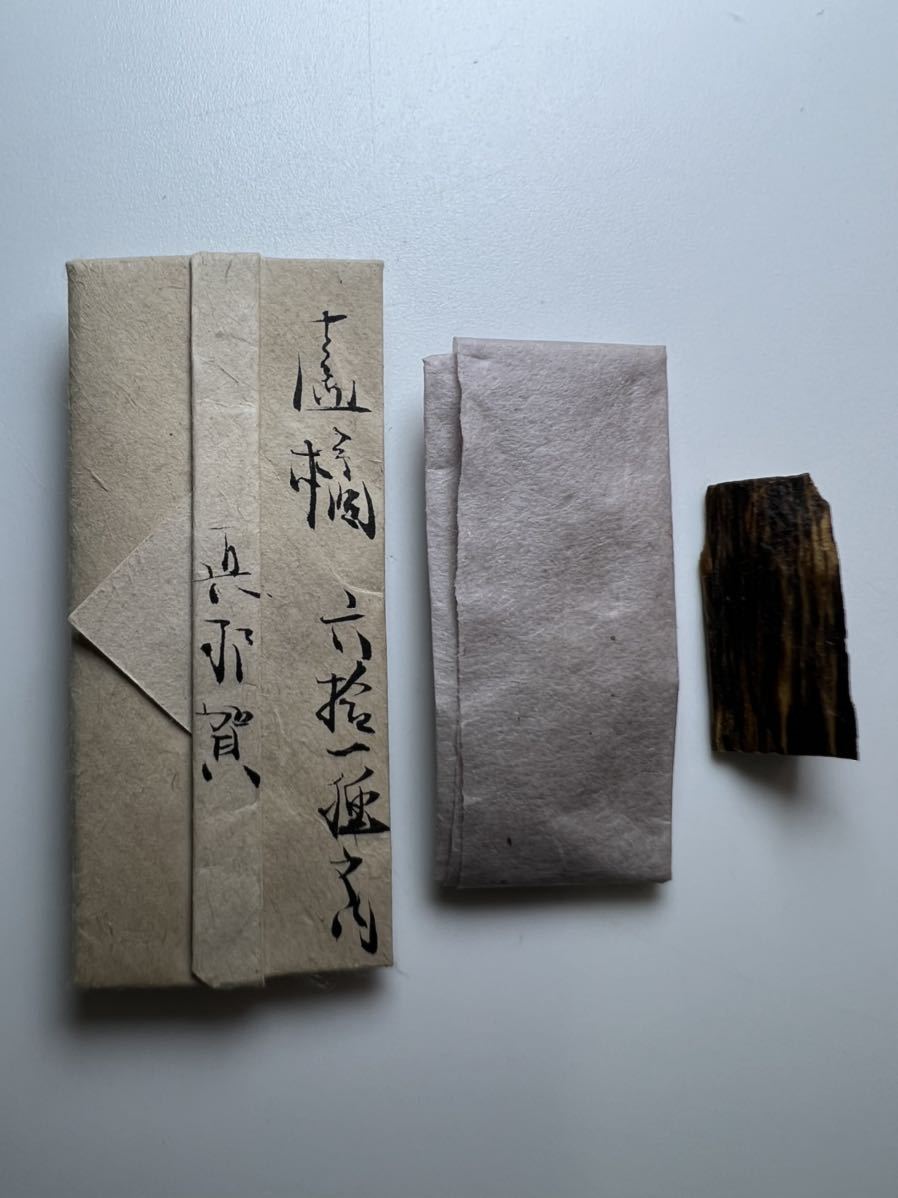 盧橘 六拾一種之内
真那賀